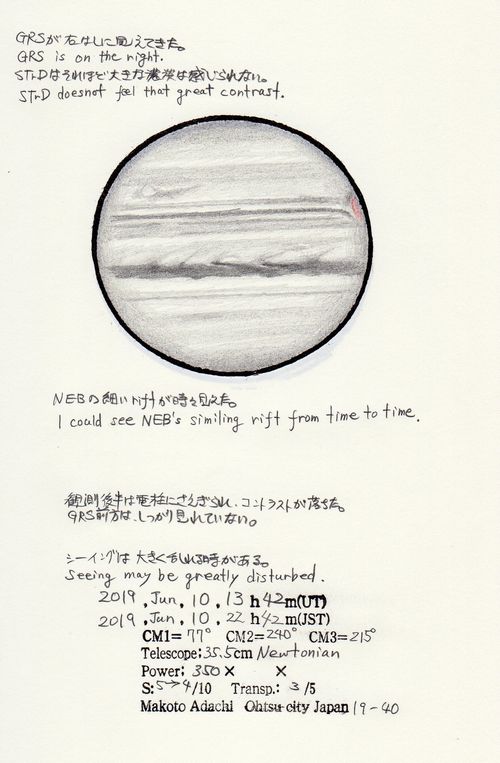 GRSが右はしに見えてきた。
GRS is on the right.
STrDはそれほど大きな濃淡は感じられない。
STrD doesnot feel that great contrast.
NEBの細いriftが時々見えた。
I could see NEB's similing rift from time to time.
観測後半は電柱にさえぎられ、コントラストが落ちた。
GRS前方は、しっかり見れていない。
シーイングは大きく乱れる時がある。
Seeing may be greatly disturbed.
2019, Jun, 10, 13 h 42m(UT)
2019, Jun, 10, 22 h 42m(JST)
CM1= 77° CM2= 240° CM3= 215°
Telescope: 35.5cm Newtonian
Power: 350× ×
S: 5→4/10 Transp.: 3/5
Makoto Adachi Ohtsu-city Japan 19-40